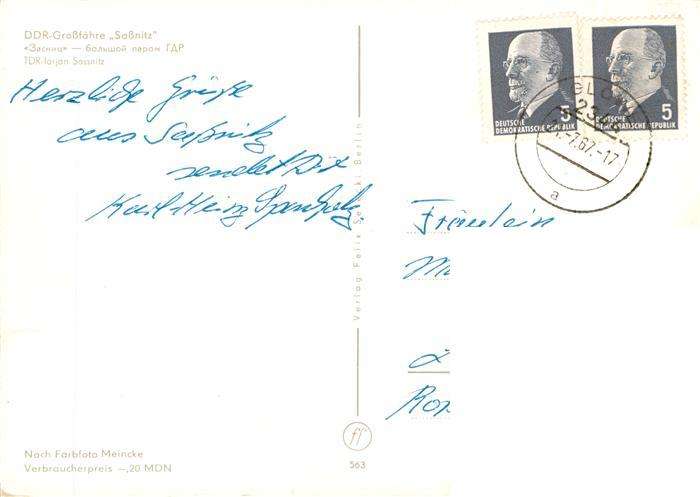 DDR-Großfähre „Saßnitz"
«Засниц» — большой паром ГДР
TDR-färjan Sassnitz
Herzliche Grüße
aus Saßnitz
sendet Dir
Karl-Heinz
Fräulein
Verlag Felix Setecki Berlin
5
DEUTSCHE
DEMOKRATISCHE REPUBLIK
5
DEUTSCHE
DEMOKRATISCHE REPUBLIK
7.67.-17
a
ff
563
Nach Farbfoto Meincke
Verbraucherpreis —,20 MDN